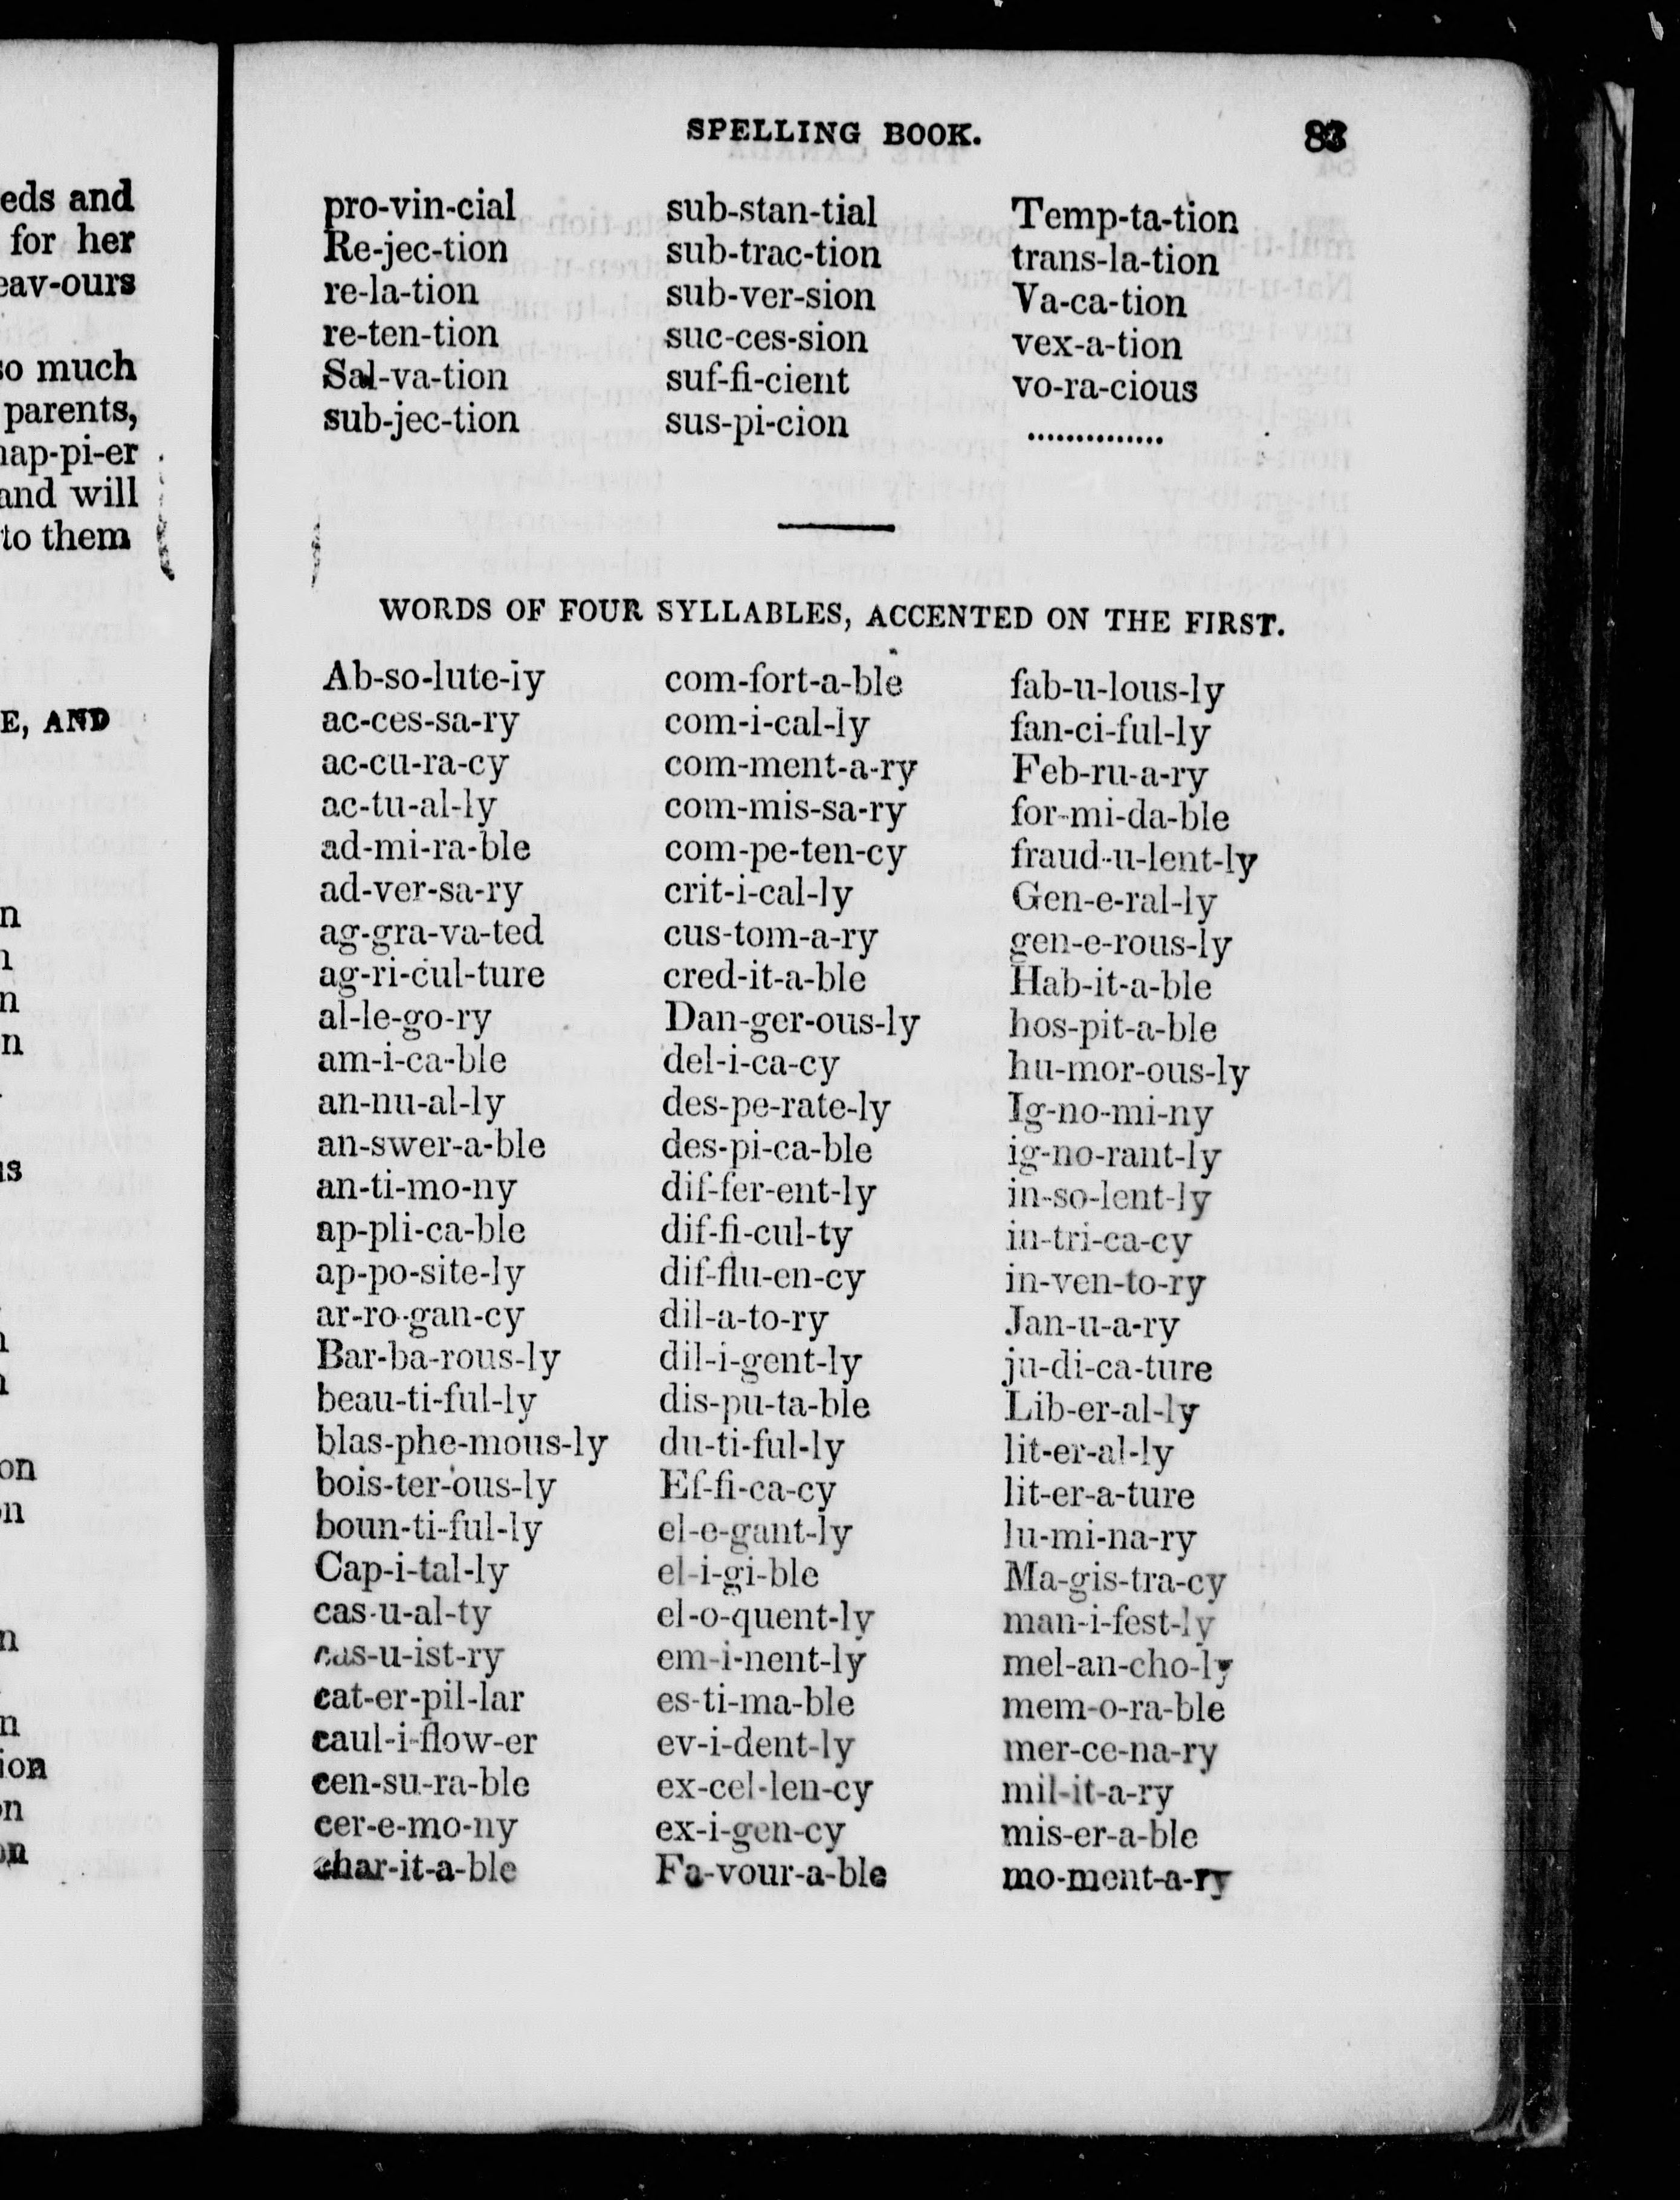 eds and
for her
eav-ours
so much
parents,
hap-pi-er
and will
to them
E, AND
n
n
n
on
n
ion
on
on
SPELLING BOOK. 83
pro-vin-cial
Re-jec-tion
re-la-tion
re-ten-tion
Sal-va-tion
sub-jec-tion
sub-stan-tial
sub-trac-tion
sub-ver-sion
suc-ces-sion
suf-fi-cient
sus-pi-cion
Temp-ta-tion
trans-la-tion
Va-ca-tion
vex-a-tion
vo-ra-cious
..............
WORDS OF FOUR SYLLABLES, ACCENTED ON THE FIRST.
Ab-so-lute-ly
ac-ces-sa-ry
ac-cu-ra-cy
ac-tu-al-ly
ad-mi-ra-ble
ad-ver-sa-ry
ag-gra-va-ted
ag-ri-cul-ture
al-le-go-ry
am-i-ca-ble
an-nu-al-ly
an-swer-a-ble
an-ti-mo-ny
ap-pli-ca-ble
ap-po-site-ly
ar-ro-gan-cy
Bar-ba-rous-ly
beau-ti-ful-ly
blas-phe-mous-ly
bois-ter-ous-ly
boun-ti-ful-ly
Cap-i-tal-ly
cas-u-al-ty
cas-u-ist-ry
cat-er-pil-lar
caul-i-flow-er
cen-su-ra-ble
cer-e-mo-ny
char-it-a-ble
com-fort-a-ble
com-i-cal-ly
com-ment-a-ry
com-mis-sa-ry
com-pe-ten-cy
crit-i-cal-ly
cus-tom-a-ry
cred-it-a-ble
Dan-ger-ous-ly
del-i-ca-cy
des-pe-rate-ly
des-pi-ca-ble
dif-fer-ent-ly
dif-fi-cul-ty
dif-flu-en-cy
dil-a-to-ry
dil-i-gent-ly
dis-pu-ta-ble
du-ti-ful-ly
Ef-fi-ca-cy
el-e-gant-ly
el-i-gi-ble
el-o-quent-ly
em-i-nent-ly
es-ti-ma-ble
ev-i-dent-ly
ex-cel-len-cy
ex-i-gen-cy
Fa-vour-a-ble
fab-u-lous-ly
fan-ci-ful-ly
Feb-ru-a-ry
for-mi-da-ble
fraud-u-lent-ly
Gen-e-ral-ly
gen-e-rous-ly
Hab-it-a-ble
hos-pit-a-ble
hu-mor-ous-ly
Ig-no-mi-ny
ig-no-rant-ly
in-so-lent-ly
in-tri-ca-cy
in-ven-to-ry
Jan-u-a-ry
ju-di-ca-ture
Lib-er-al-ly
lit-er-al-ly
lit-er-a-ture
lu-mi-na-ry
Ma-gis-tra-cy
man-i-fest-ly
mel-an-cho-ly
mem-o-ra-ble
mer-ce-na-ry
mil-it-a-ry
mis-er-a-ble
mo-ment-a-ry